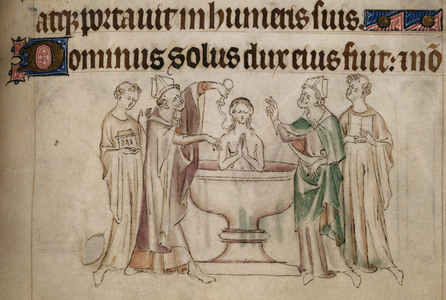 atq; portauit in humeris suis.
Dominus solus dux eius fuit: ⁊ nō